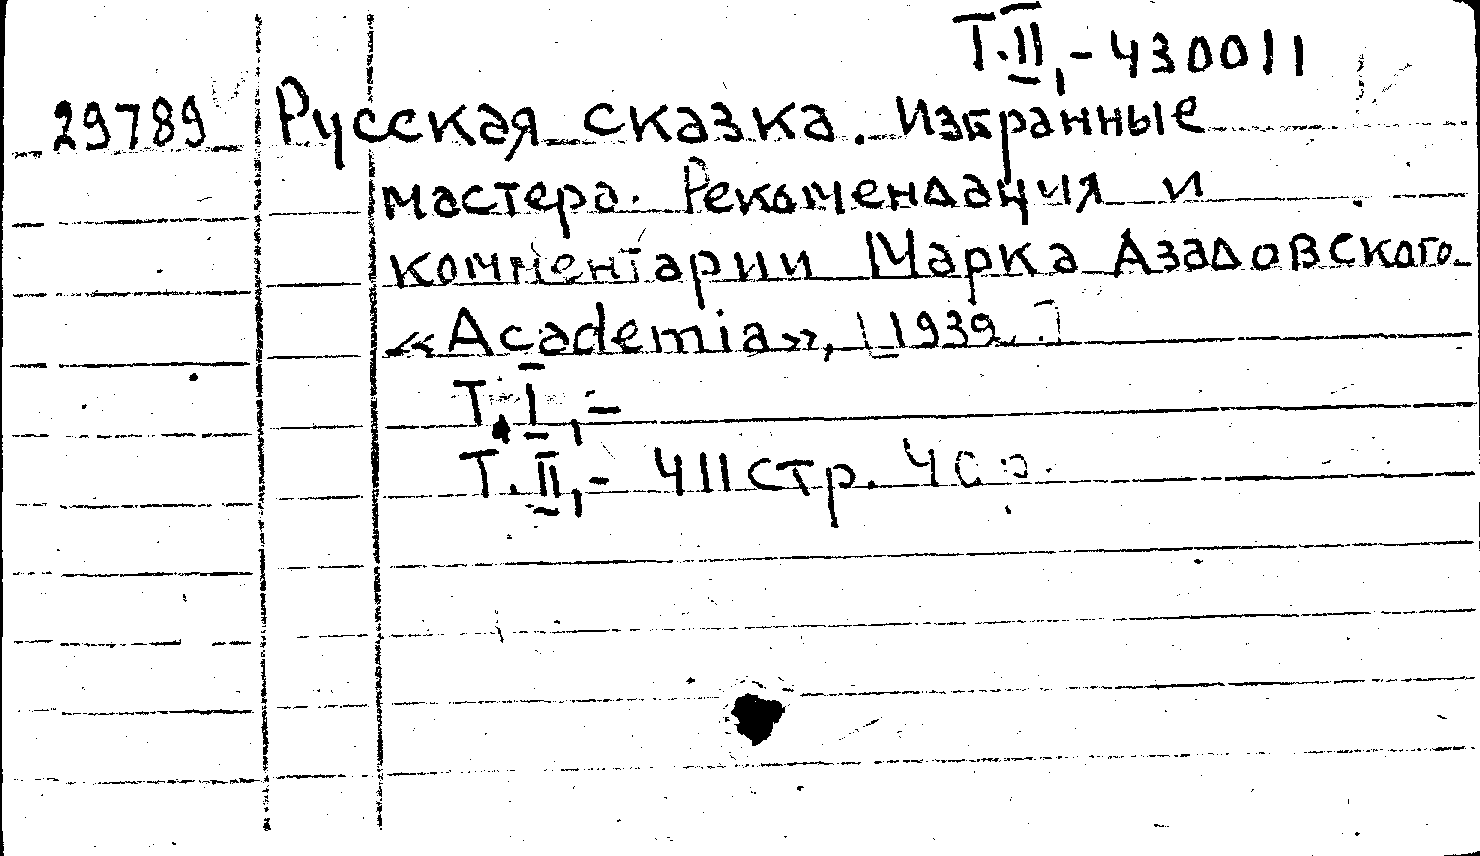 Т.II,- 430011
29789 Русская сказка. Избранные
мастера. Рекомендация и
комментарии Марка Азадовского.
«Academia», [1939.]
Т.I,-
Т.II,- 411стр.